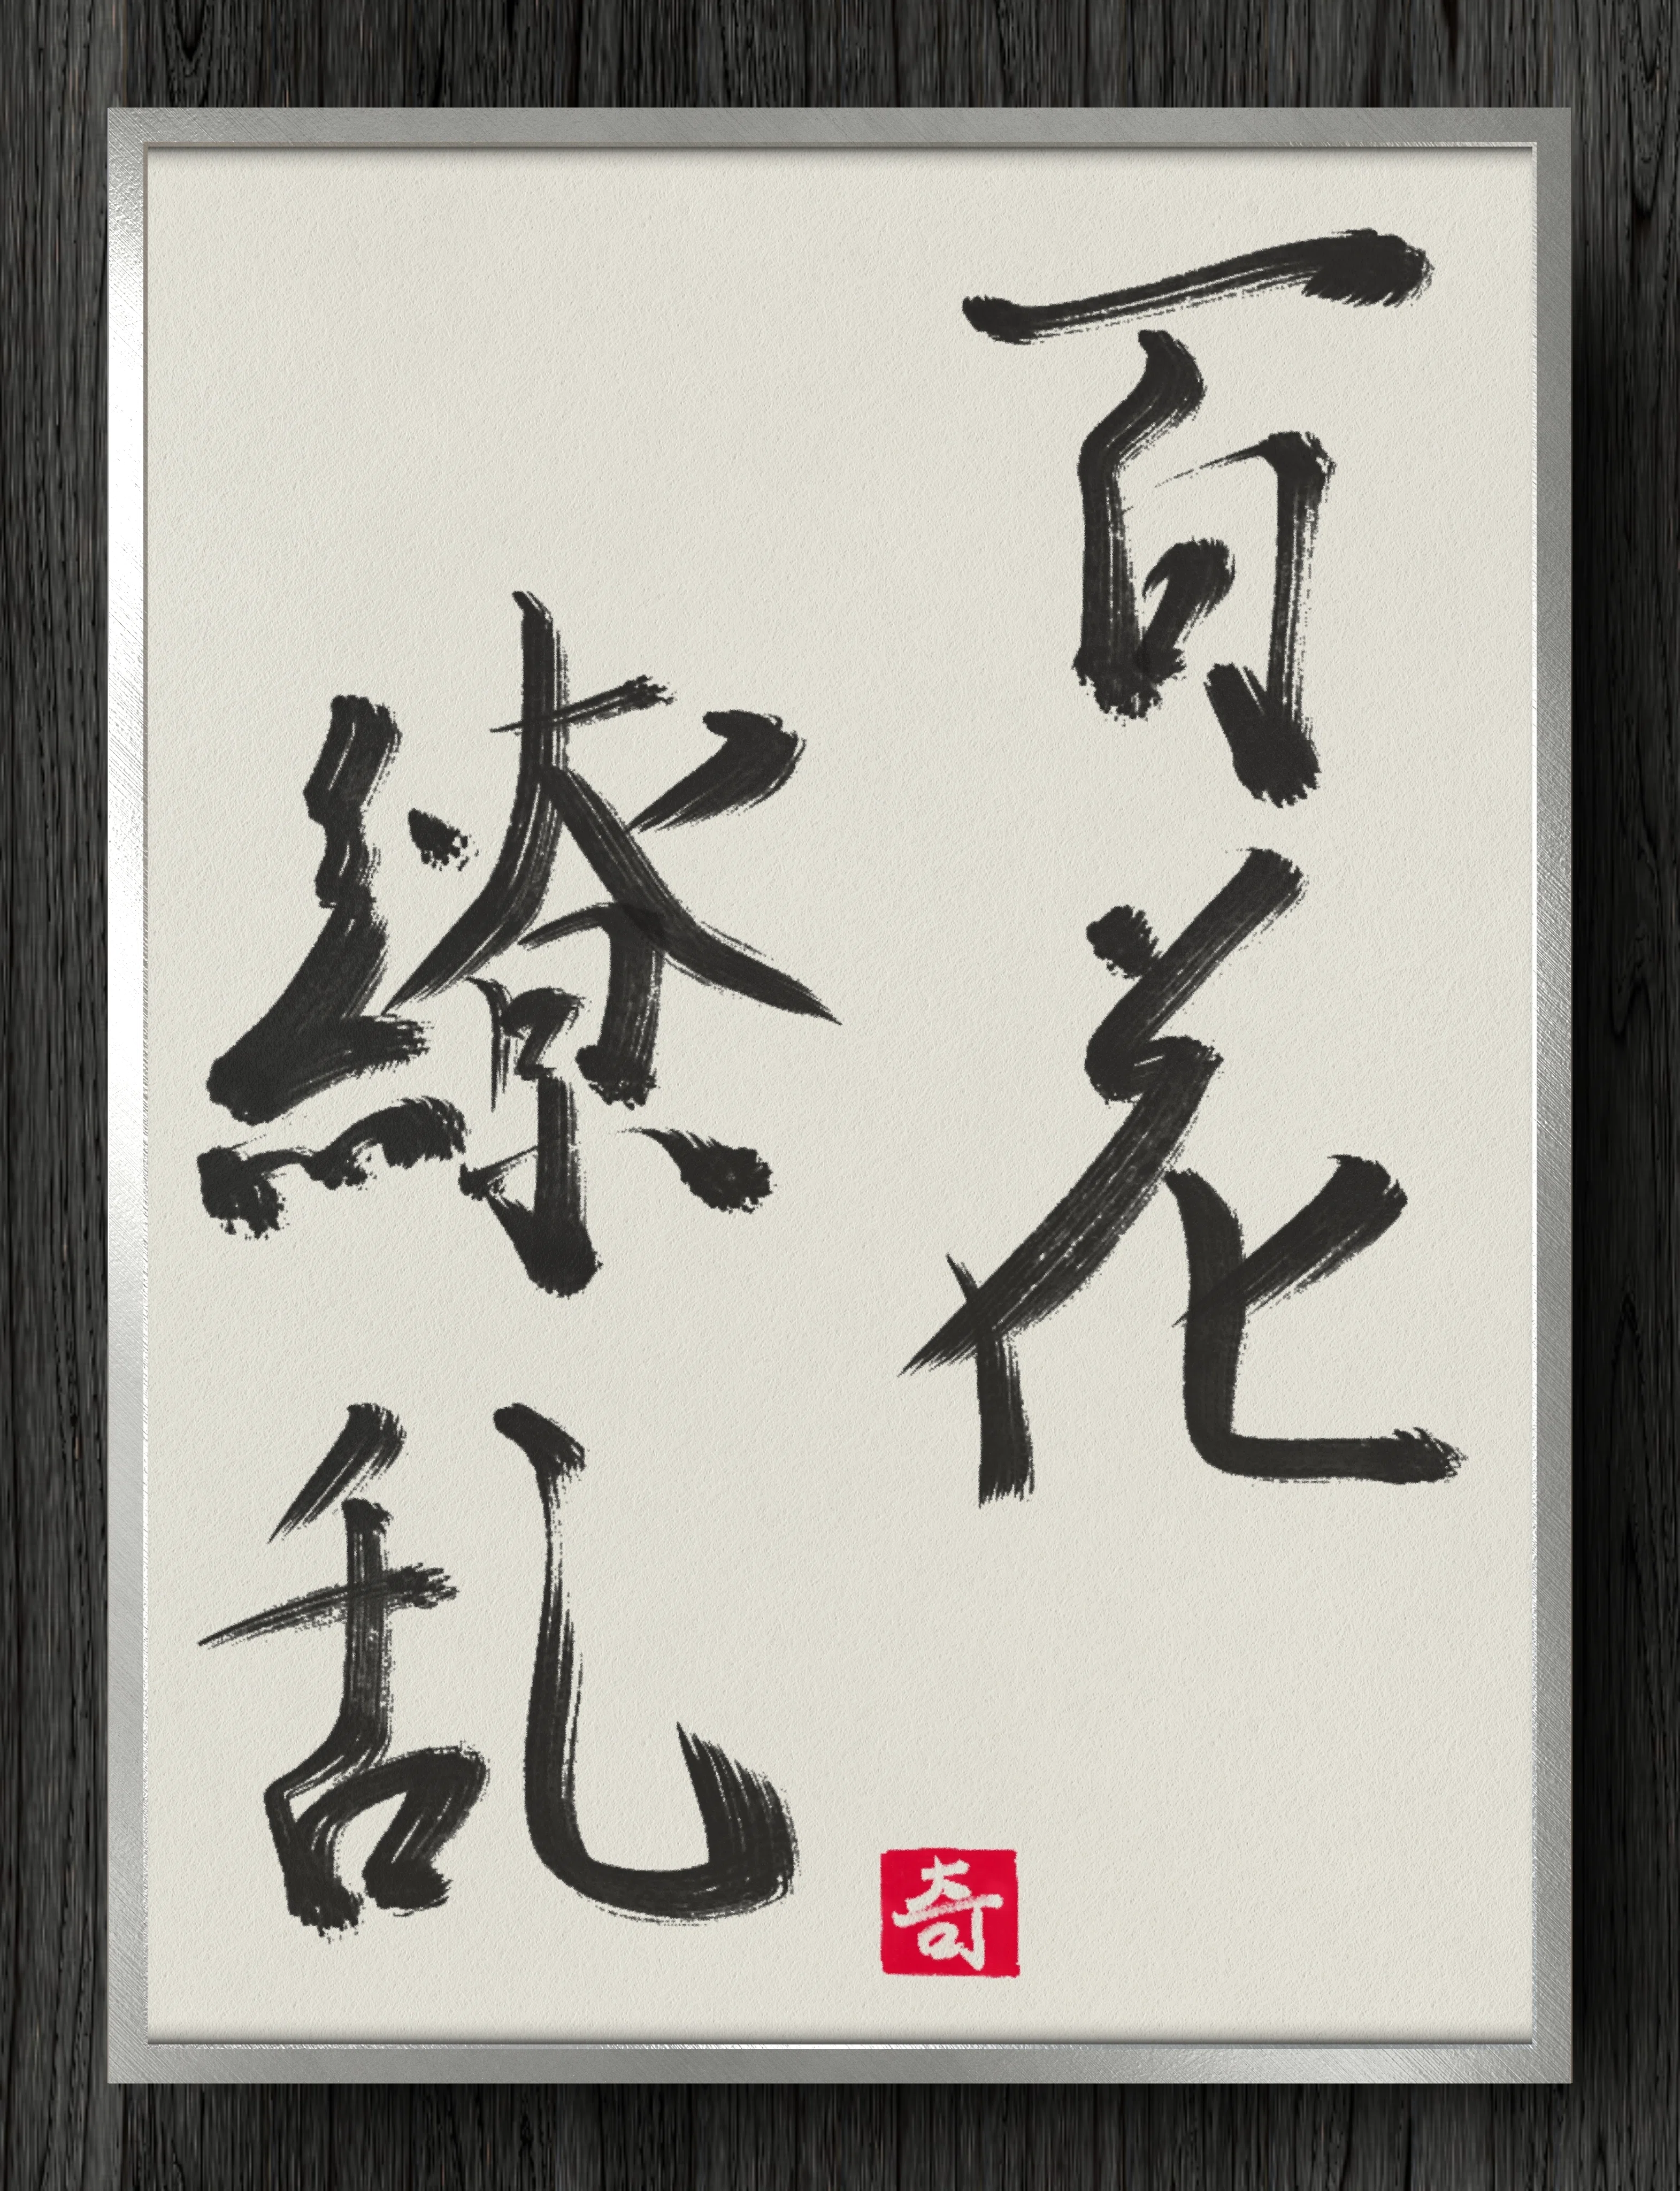 百花
繚乱
奇